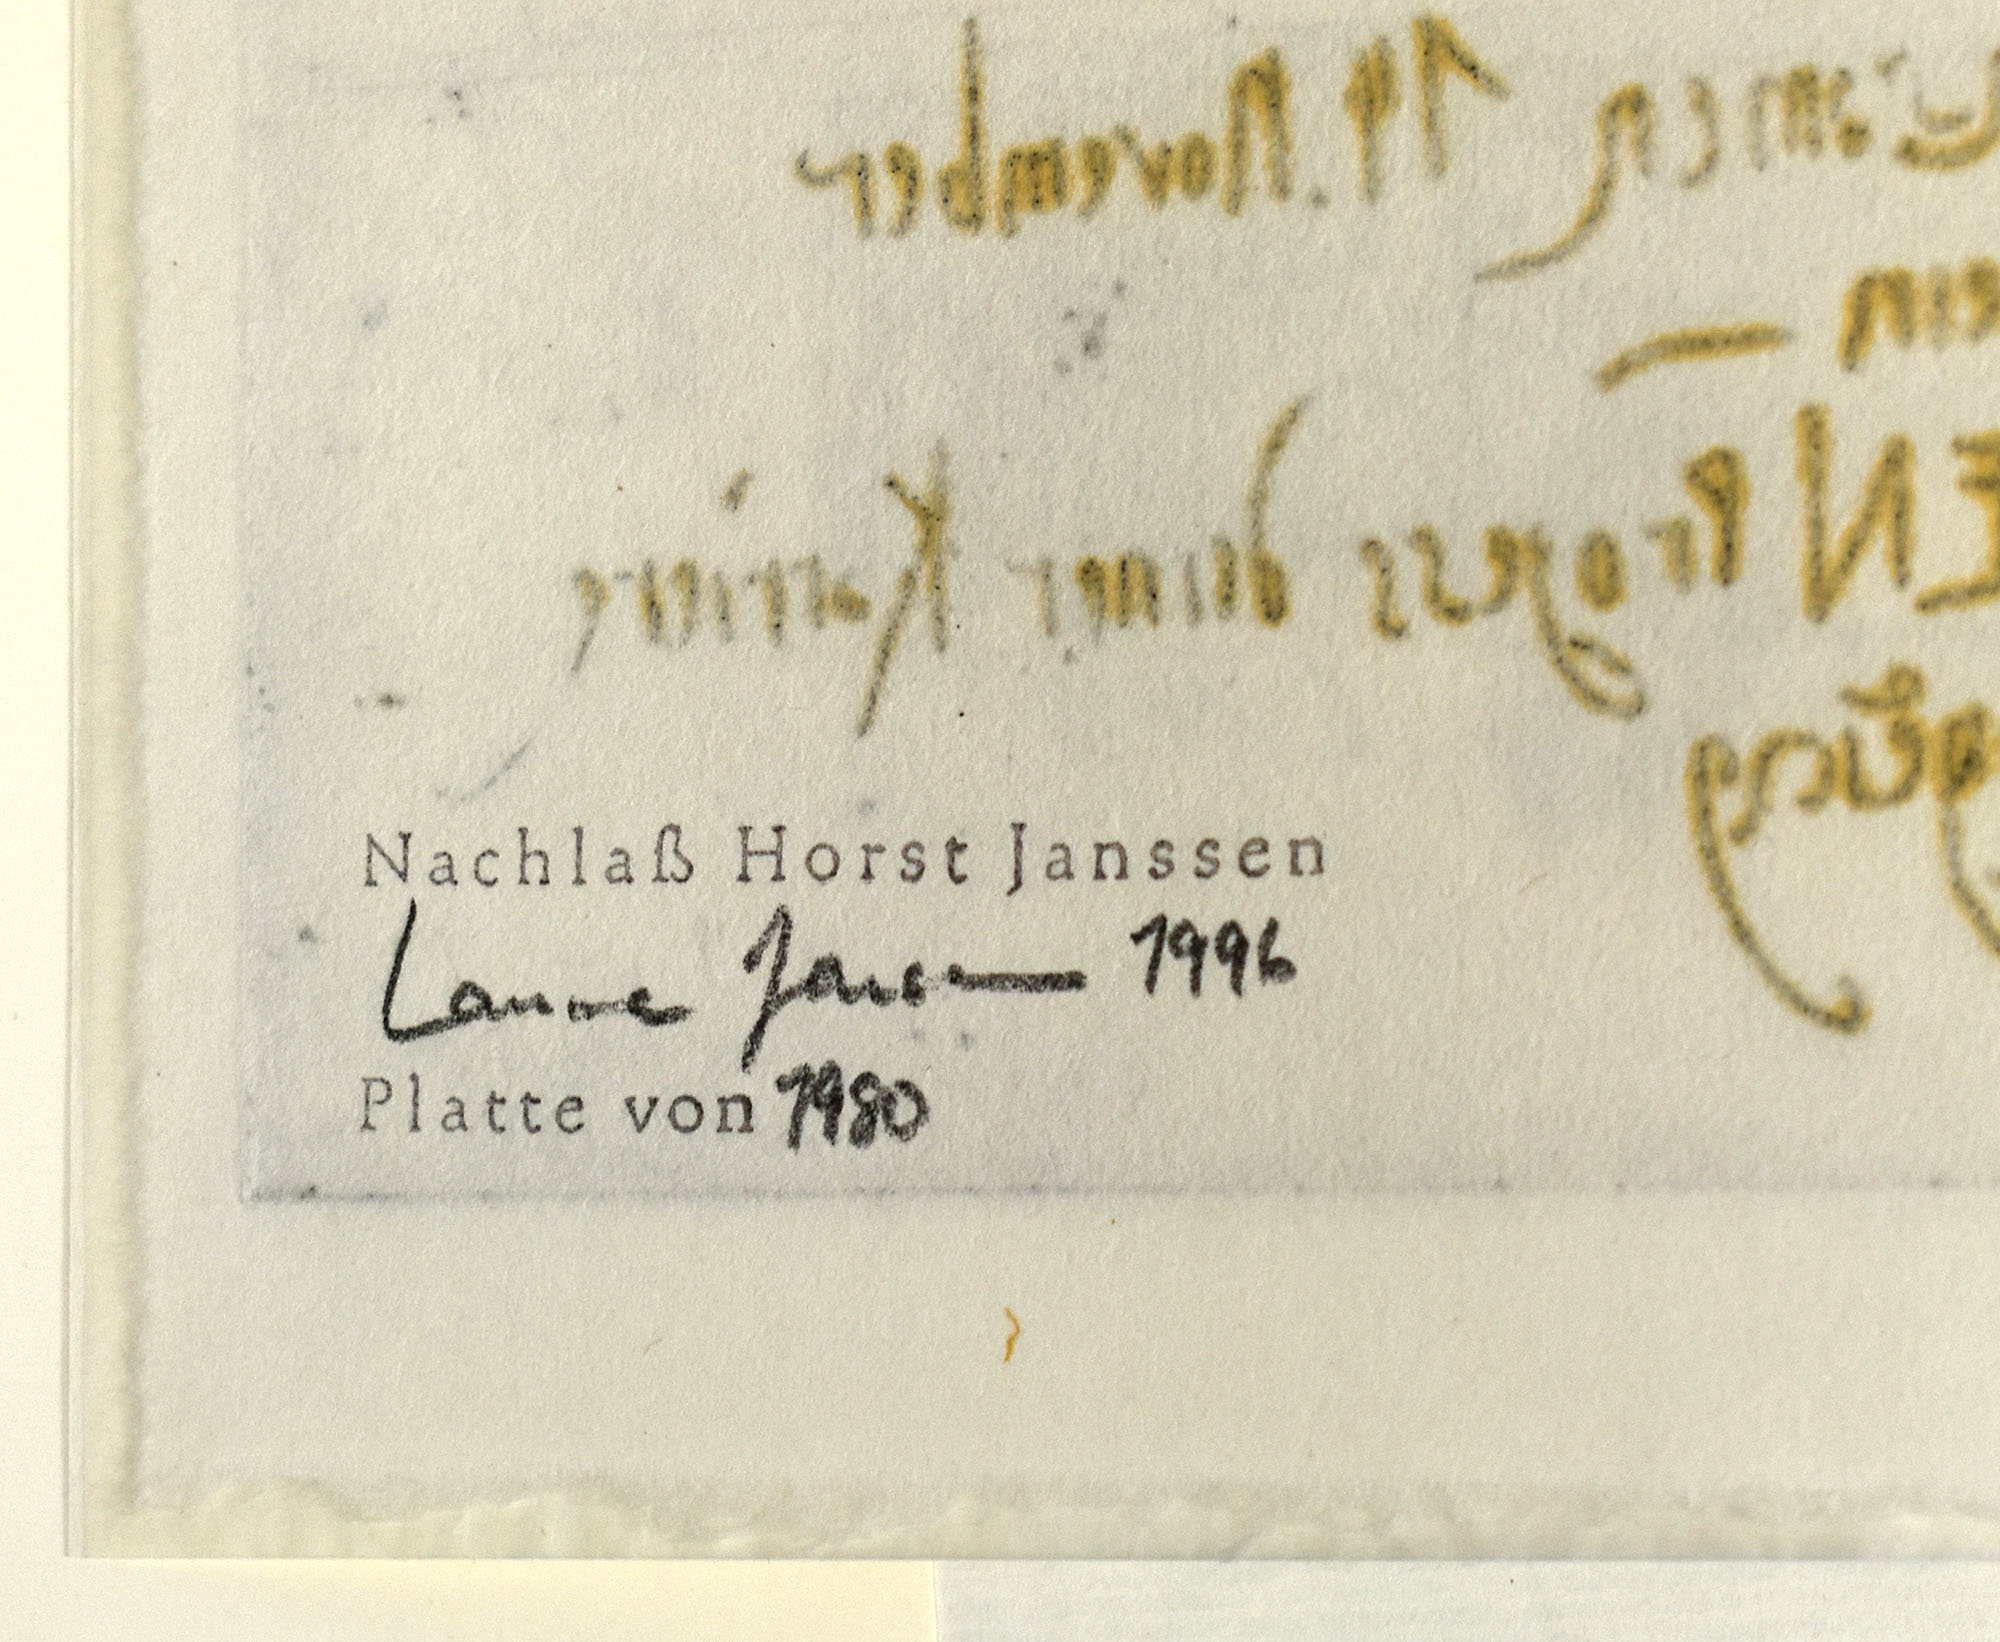 19. November
ein —
EN Prozess deiner Karriere
Nachlaß Horst Janssen
Lamme Janssen 1996
Platte von 1980